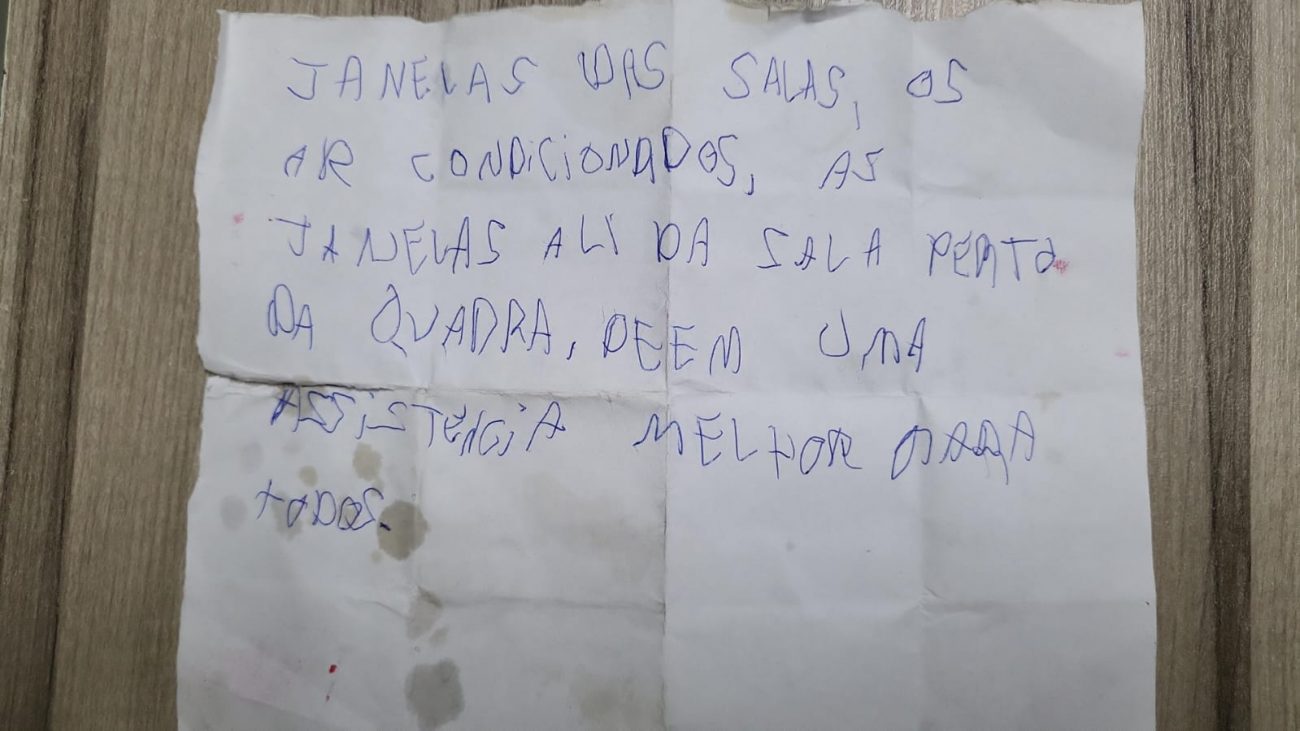 JANELAS DAS SALAS, OS
AR CONDICIONADOS, AS
JANELAS ALI DA SALA PERTO
DA QUADRA, DEEM UMA
ASSISTÊNCIA MELHOR PARA
TODOS.